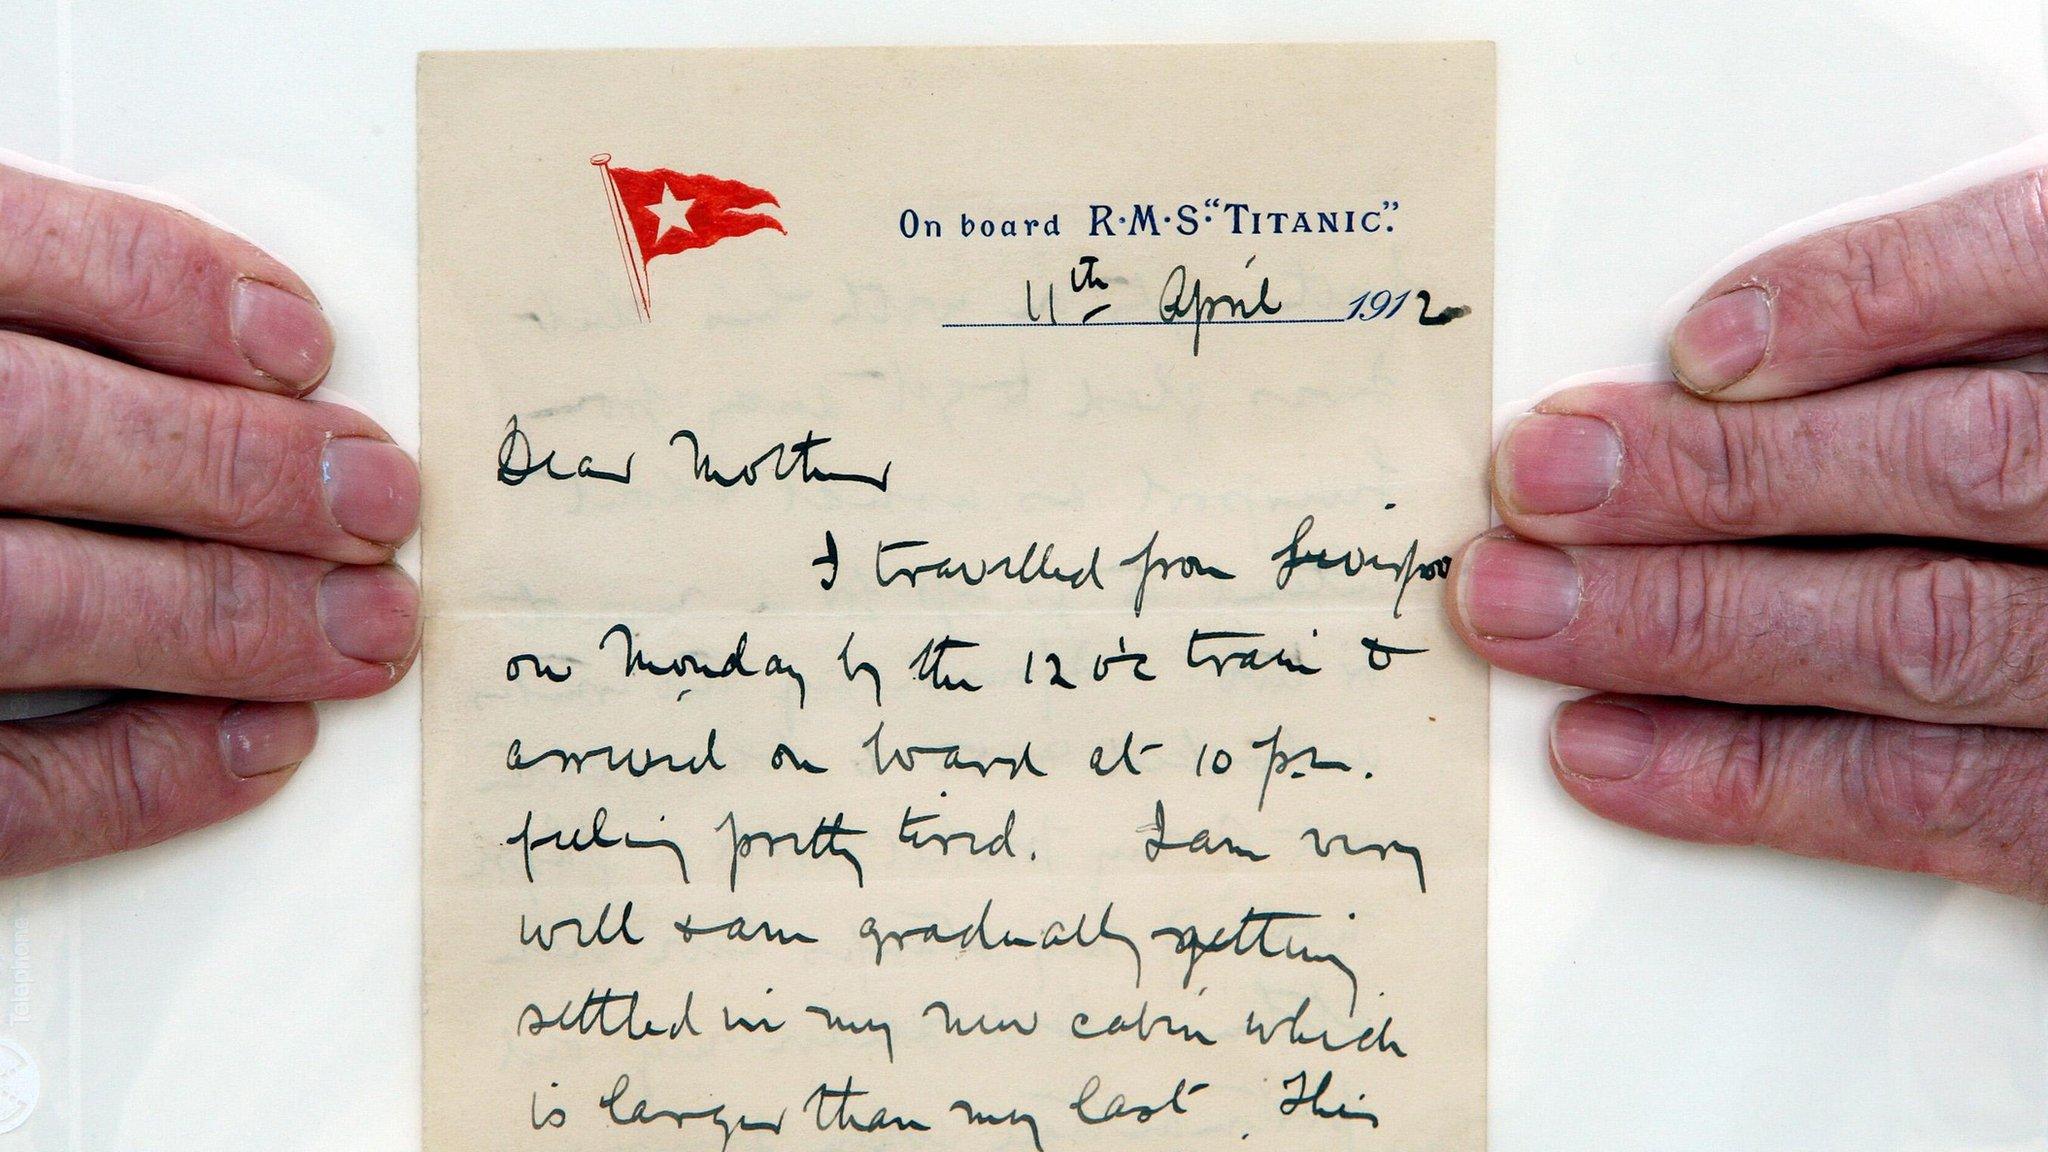 On board R·M·S· “TITANIC”.
11th April 1912
Dear Mother
I travelled from Liverpoo
on Monday by the 12 o'c train &
arrived on board at 10 p.m.
feeling pretty tired. I am very
well & am gradually getting
settled in my new cabin which
is larger than my last. This
Telephone